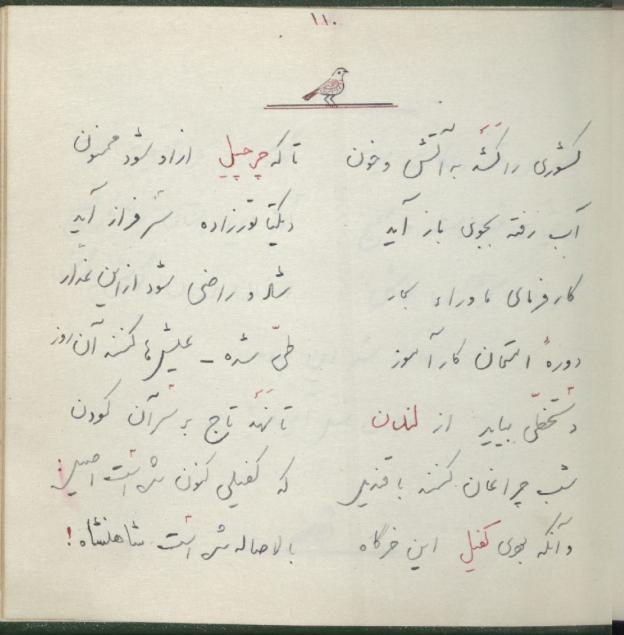 ۱۱۰
کشوری را کشد به آتش و خون تا که چرچیل ازاد شود ممنون
آب رفته بجوی باز آید دیکتاتورزاده سرفراز آید
کارفرمای ماوراء بحار شاد و راضی شود از این غدار
دورهٔ امتحان کارآموز طی شده - عیش‌ها کند آن روز
دستخطی بیاید از لندن تا نهد تاج بر سر آن کودن
شب چراغان کنند با قندیل که کفیلی کنون شده است اصیل
وآنکه بودی کفیل این خرگاه بالاصاله شده است شاهنشاه!